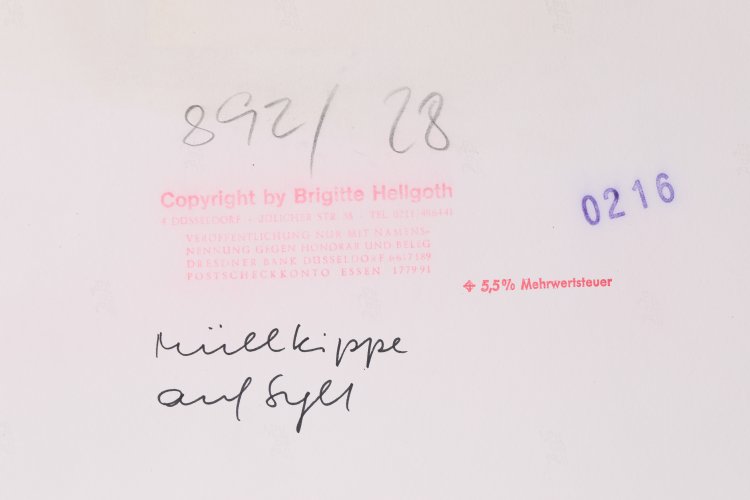 892/28
Copyright by Brigitte Hellgoth
4 DÜSSELDORF - JÜLICHER STR. 38 - TEL. 0211/486441
VERÖFFENTLICHUNG NUR MIT NAMENS-
NENNUNG GEGEN HONORAR UND BELEG
DRESDNER BANK DÜSSELDORF 6617189
POSTSCHECKKONTO ESSEN 177991
0216
5,5% Mehrwertsteuer
Müllkippe
auf Sylt